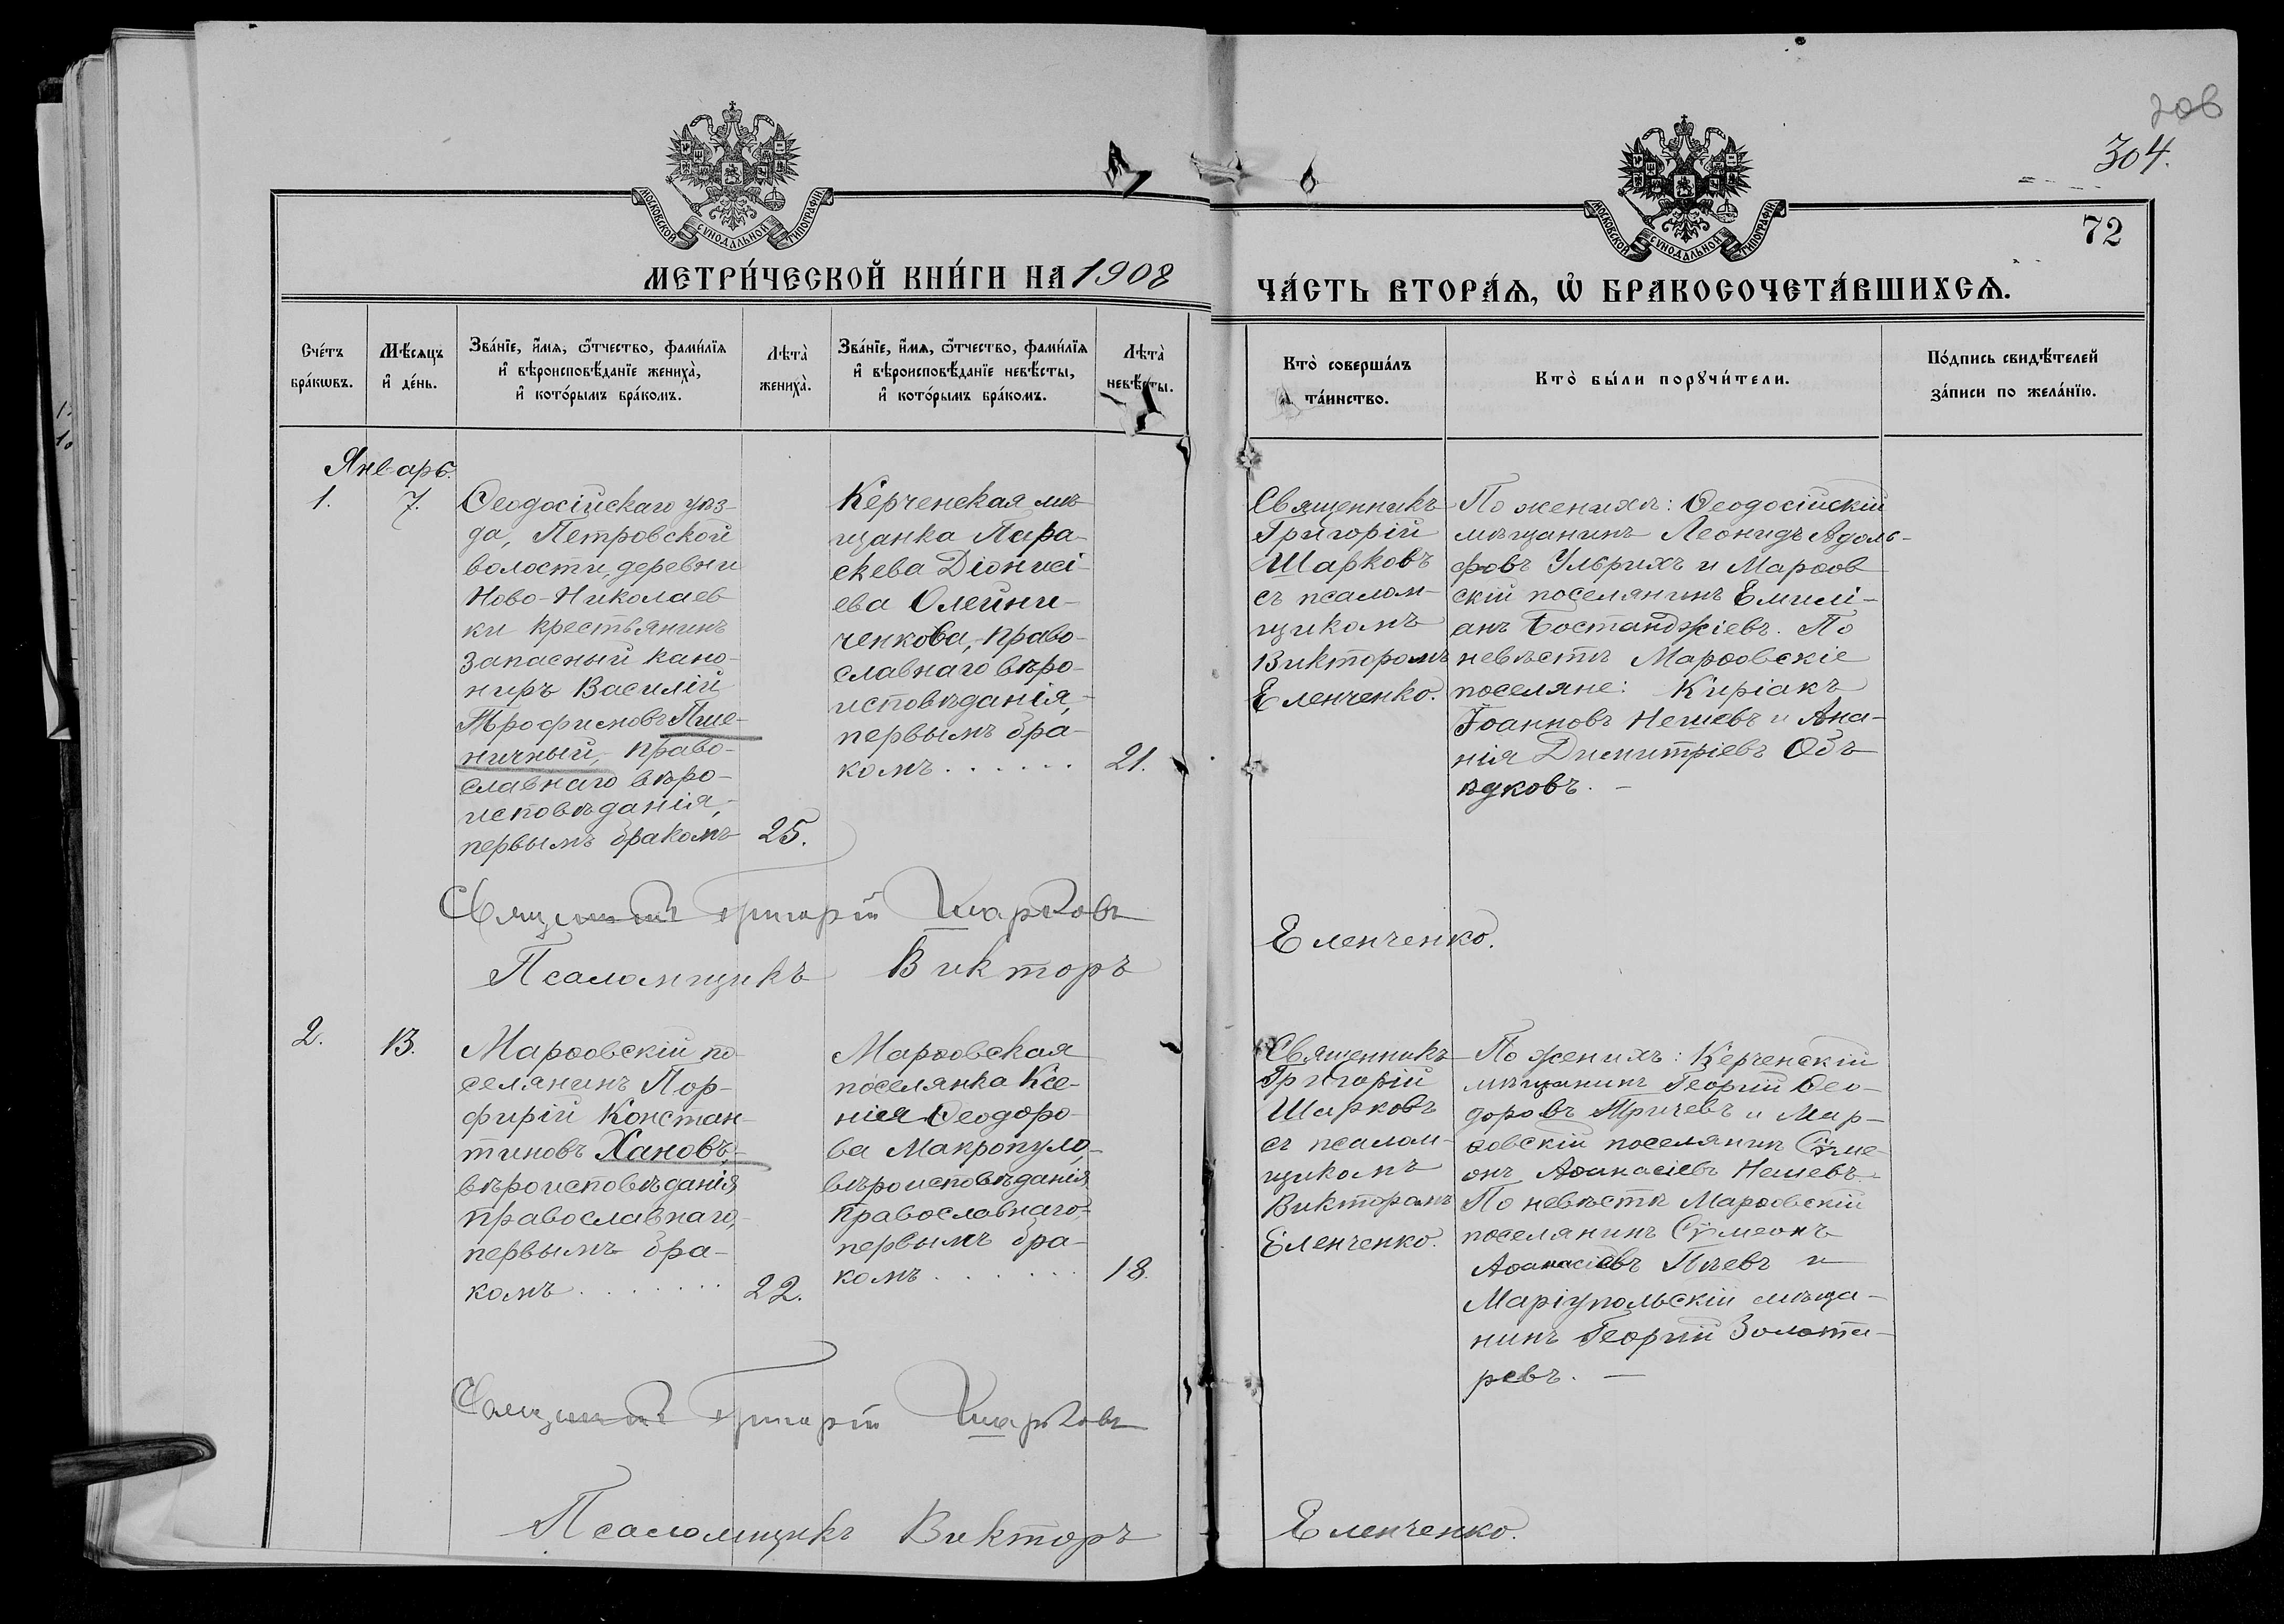 206
304.
72
МОСКОВСКОЙ СѴНОДАЛЬНОЙ ТИПОГРАФІИ
МОСКОВСКОЙ СѴНОДАЛЬНОЙ ТИПОГРАФІИ
МЕТРИ́ЧЕСКОЙ КНИ́ГИ НА 1908
ЧА́СТЬ ВТОРА́Ѧ, Ѡ҆ БРАКОСОЧЕТА́ВШИХСѦ.
Сче́тъ бра́кѡвъ.
Мѣ́сѧцъ и҆ де́нь.
Зва́нїе, и҆́мѧ, ѻ҆́тчество, фами́лїѧ
и҆ вѣроисповѣ́данїе жениха̀,
и҆ кото́рымъ бра́комъ.
Лѣта̀ жениха̀.
Зва́нїе, и҆́мѧ, ѻ҆́тчество, фами́лїѧ
и҆ вѣроисповѣ́данїе невѣ́сты,
и҆ кото́рымъ бра́комъ.
Лѣта̀ невѣ́сты.
Кто̀ соверша́лъ
та́инство.
Кто̀ бы́ли порꙋчи́тели.
По́дпись свидѣ́телей
за́писи по жела́нїю.
Январь.
1.
7.
Ѳеодосійскаго уѣз-
да, Петровской
волости, деревни
Ново-Николаев
ки крестьянинъ
запасный кано-
ниръ Василій
Трофимовъ Пше-
ничный, право-
славнаго вѣро-
исповѣданія,
первымъ бракомъ
25.
Керченская мѣ
щанка Пара-
скева Діонисі-
ева Олейни-
ченкова, право-
славнаго вѣро-
исповѣданія,
первымъ бра-
комъ . . . . . .
21.
Священникъ
Григорій
Шарковъ
съ псалом-
щикомъ
Викторомъ
Еленченко.
По женихѣ: Ѳеодосійскій
мѣщанинъ Леонидъ Адоль-
фовъ Ульрихъ и Марѳов
скій поселянинъ Емилі-
анъ Бостанджіевъ. По
невѣстѣ Марѳовскіе
поселяне: Киріакъ
Іоанновъ Нешевъ и Ана-
нія Димитріевъ Объ
ѣдковъ. —
Священникъ Григорій Шарковъ
Псаломщикъ Викторъ
Еленченко.
2.
13.
Марѳовскій по
селянинъ Пор-
фирій Констан-
тиновъ Хановъ,
вѣроисповѣданія
православнаго,
первымъ бра-
комъ . . . . . . .
22.
Марѳовская
поселянка Ксе-
нія Ѳеодоро-
ва Макропуло,
вѣроисповѣданія
православнаго,
первымъ бра-
комъ . . . . . .
18.
Священникъ
Григорій
Шарковъ
съ псалом-
щикомъ
Викторомъ
Еленченко.
По женихѣ: Керченскій
мѣщанинъ Георгій Ѳео-
доровъ Тричевъ и Мар-
ѳовскій поселянинъ Сѵме-
онъ Аѳанасіевъ Нешевъ.
По невѣстѣ Марѳовскій
поселянинъ Сѵмеонъ
Аѳанасіевъ Піевъ и
Маріупольскій мѣща-
нинъ Георгій Золота-
ревъ. —
Священникъ Григорій Шарковъ
Псаломщикъ Викторъ
Еленченко.